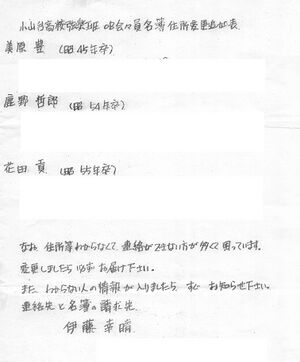 小山台高校弦楽班 OB会々員名簿 住所変更追加表
美原 豊 (昭45年卒)
鹿野 哲郎 (昭54年卒)
花田 貢 (昭55年卒)
なお 住所等わからなくて 連絡ができない方が多くて困っています。
変更しましたら必ずお届け下さい。
また わからない人の情報が入りましたら すぐお知らせ下さい。
連絡先と名簿の請求先
伊藤 幸晴